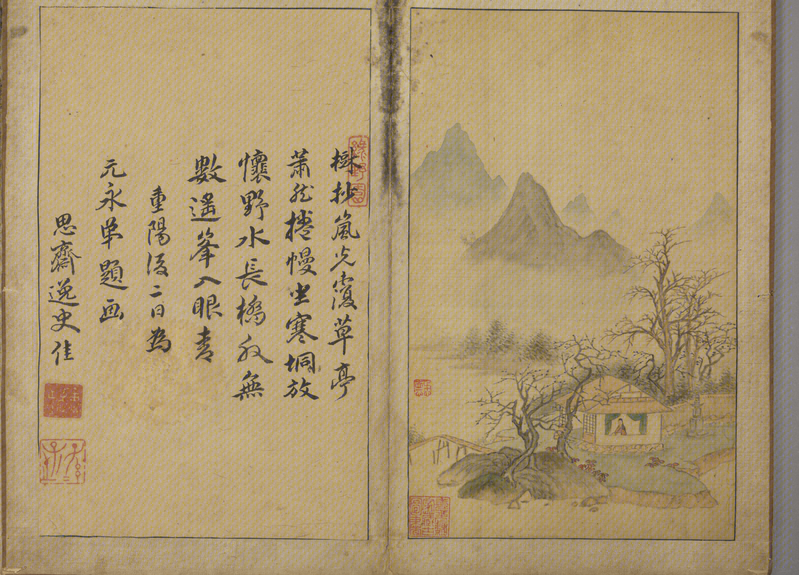 樹杪嵐光覆草亭
蕭然捲幔坐寒坰放
懷野水長橋外無
數遙峯入眼青
重陽後二日為
元永題画
思齋逸史佳